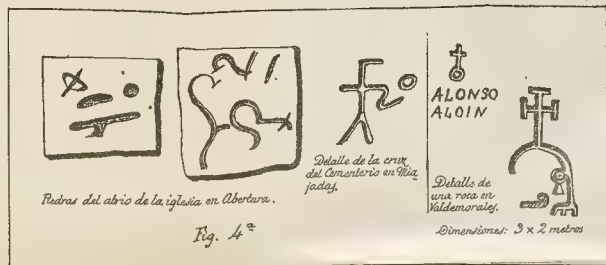 Piedras del atrio de la iglesia en Abertura.
Detalle de la cruz
del Cementerio en Mia
jadas.
ALONSO
ALOIN
Detalle de
una roca en
Valdemorales.
Dimensiones: 3 x 2 metros
Fig. 4ª